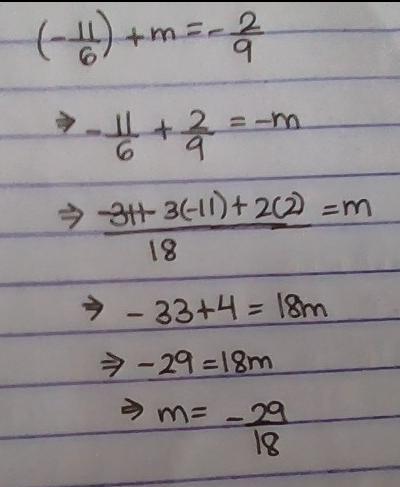 (-11/6) + m = -2/9
⇒ -11/6 + 2/9 = -m
⇒ (3(-11) + 2(2))/18 = m
⇒ -33+4 = 18m
⇒ -29 = 18m
⇒ m = -29/18